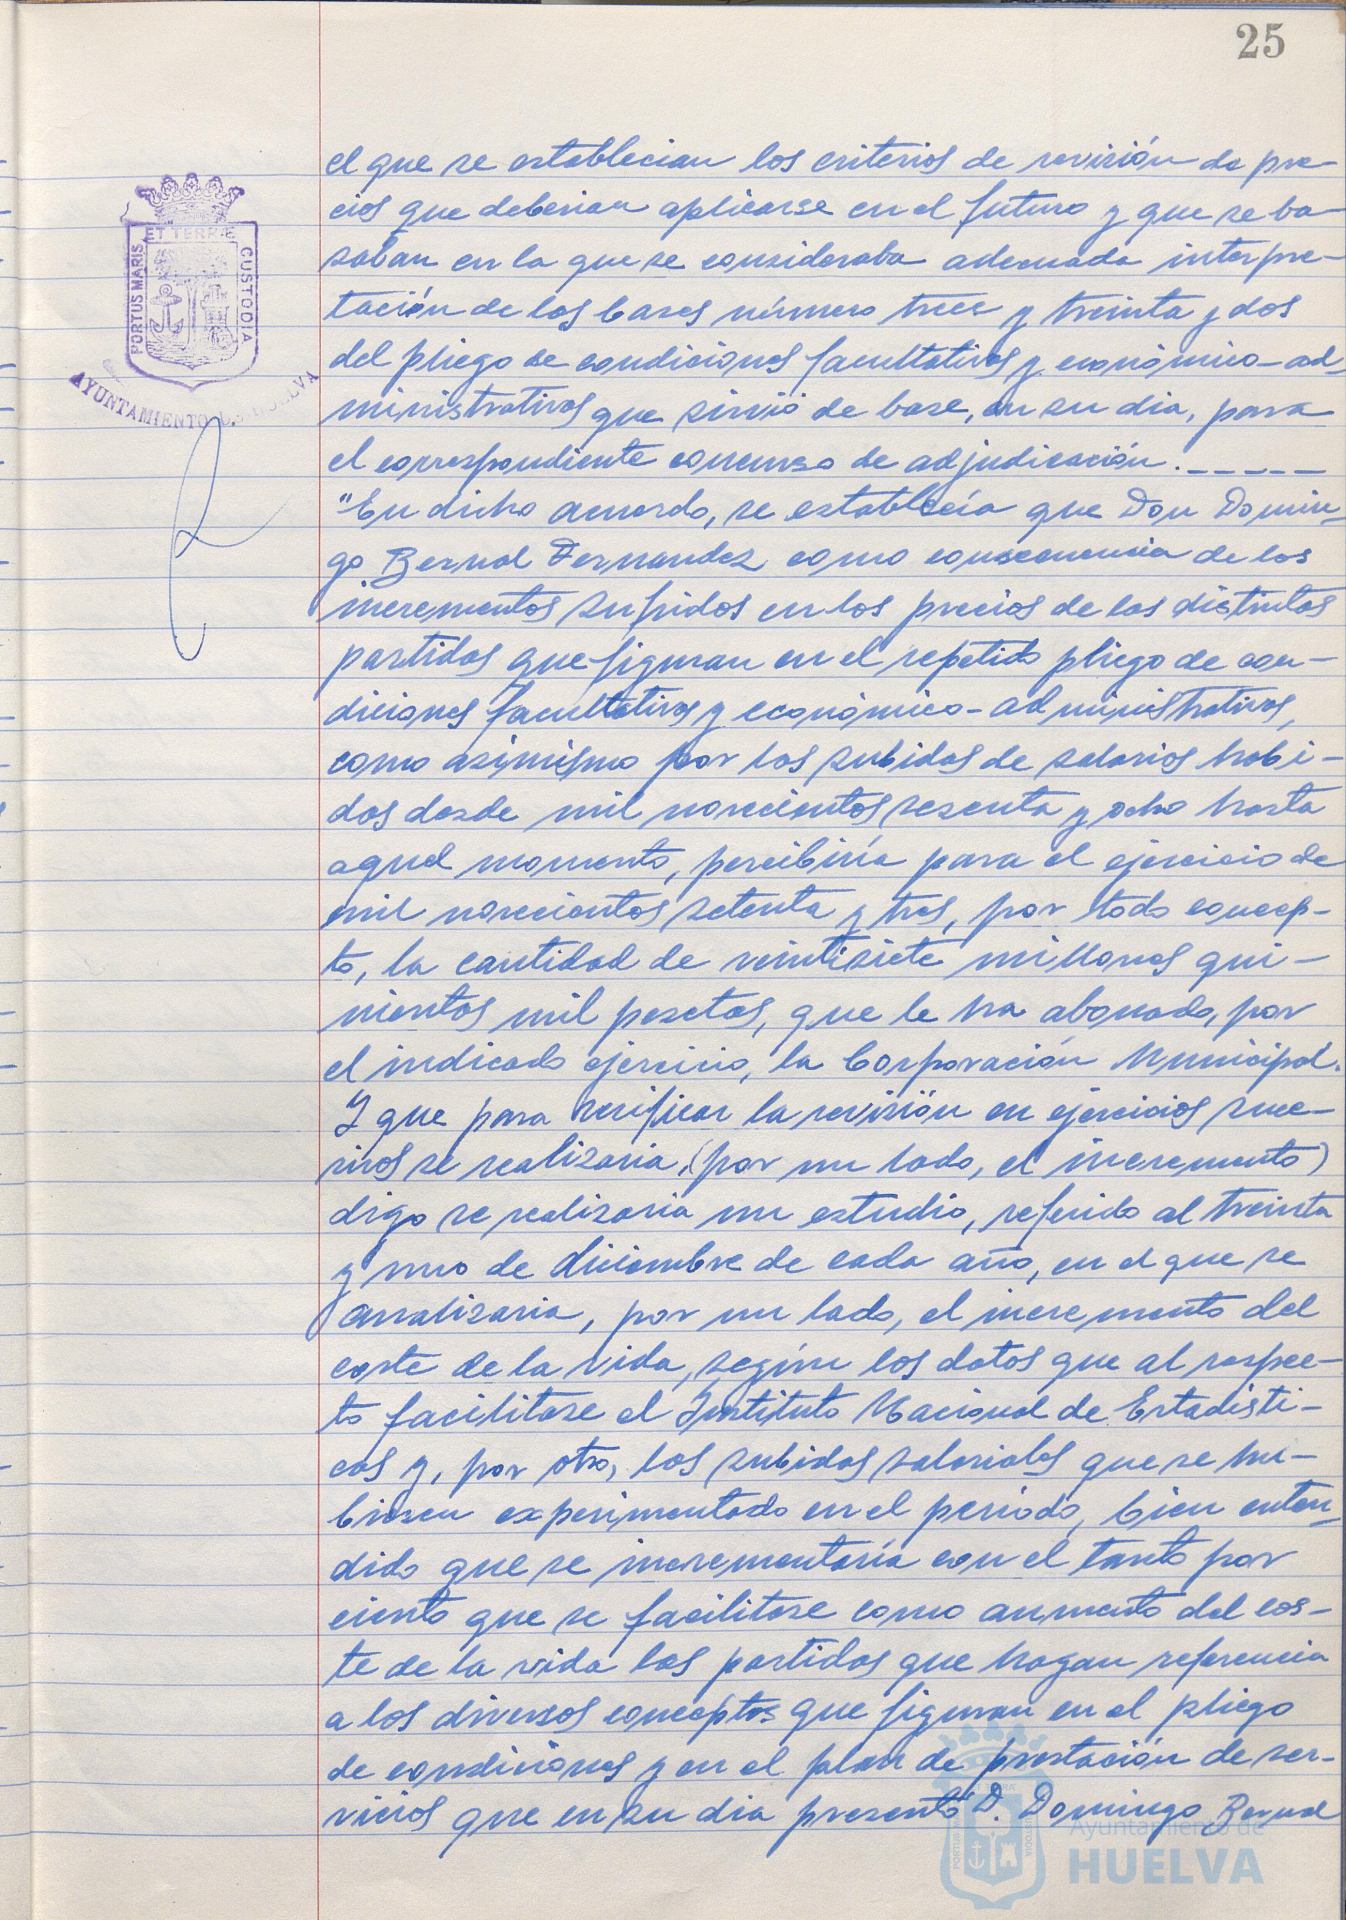 25
ET TERRÆ
PORTUS MARIS
CUSTODIA
AYUNTAMIENTO DE HUELVA
el que se establecian los criterios de revisión de pre-
cios que deberian aplicarse en el futuro y que se ba-
saban en la que se consideraba adecuada interpre-
tación de las bases número trece y treinta y dos
del pliego de condiciones facultativas y económico-ad-
ministrativas que sirvió de base, en su dia, para
el correspondiente concurso de adjudicación.-----
"En dicho acuerdo, se establecía que Don Domin-
go Bernal Fernandez como consecuencia de los
incrementos sufridos en los precios de las distintas
partidas que figuran en el repetido pliego de con-
diciones facultativas y económico-administrativas,
como asimismo por las subidas de salarios habi-
dos desde mil novecientos sesenta y ocho hasta
aquel momento, percibiría para el ejercicio de
mil novecientos setenta y tres, por todo concep-
to, la cantidad de veintisiete millones qui-
nientas mil pesetas, que le ha abonado, por
el indicado ejercicio, la Corporación Municipal.
Y que para verificar la revisión en ejercicios suce-
sivos se realizaria, (por un lado, el incremento)
digo se realizaria un estudio, referido al treinta
y uno de diciembre de cada año, en el que se
analizaria, por un lado, el incremento del
coste de la vida, según los datos que al respec-
to facilitase el Instituto Nacional de Estadisti-
cas y, por otro, las subidas salariales que se hu-
biesen experimentado en el período, bien enten-
dido que se incrementaría con el tanto por
ciento que se facilitase como aumento del cos-
te de la vida las partidas que hagan referencia
a los diversos conceptos que figuran en el pliego
de condiciones y en el plan de prestación de ser-
vicios que en su dia presentó D. Domingo Bernal
Ayuntamiento de
HUELVA